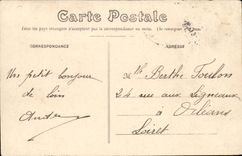 Carte Postale
CORRESPONDANCE
ADRESSE
Un petit bonjour
de loin
André
Mlle Berthe Toulon
24 rue aux Ligneaux
à Orléans
Loiret